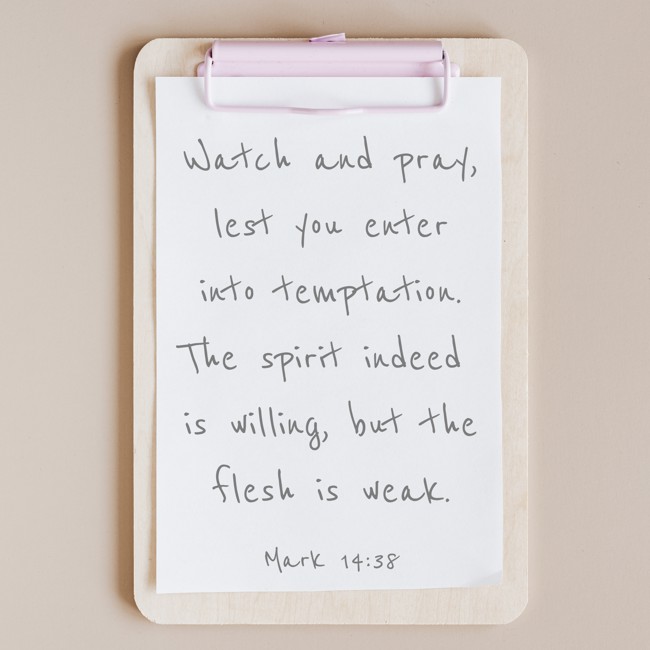 Watch and pray,
lest you enter
into temptation.
The spirit indeed
is willing, but the
flesh is weak.
Mark 14:38